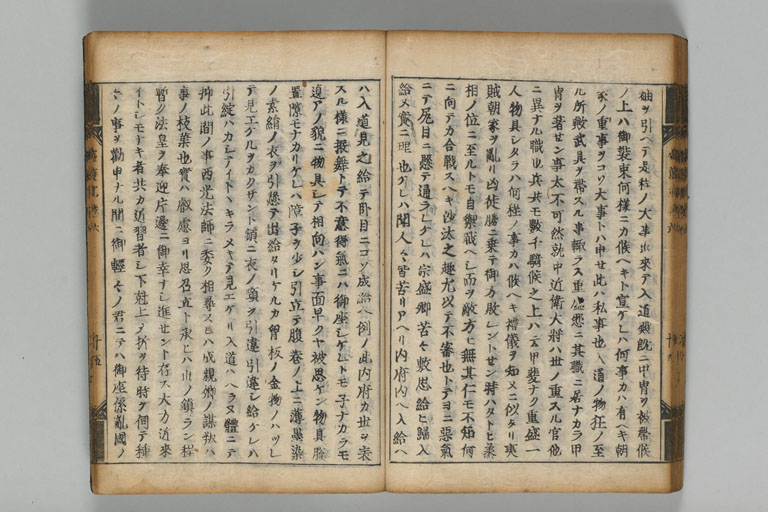 袖ヲ引ヘテ是程ノ大事出來テ入道殿既ニ甲冑ヲ被帶候
ノ上ハ御裝束何樣ニカ候ヘキト宣ケレハ何事カハ有ヘキ朝
家ノ重事ヲコソ大事トハ申セ此ハ私事也入道ノ物狂ノ至
ル所歟武具ヲ帶スル事輙ラス重盛悉ニ其職ニ居ナカラ甲
冑ヲ著セン事太不可然就中近衛大將ハ世ノ重スル官他
ニ異ナル職也兵共モ數千騎候之上ハ云甲斐ナク重盛一
人物具シタラハ何程ノ事カハ候ヘキ禮儀ヲ知メニ似タリ夷
賊朝家ヲ亂リ凶徒勝ニ乗テ御方敗レントセン時ハタトヒ丞
相ノ位ニ至ルトモ自禦戰ヘシ而ヲ敵方ニ無其仁モ不知何
ニ向テカ合戰スヘキ沙汰之趣尤以テ不審也トテヨニ惡氣
ニテ尻目ニ懸テ通ラレケレハ宗盛卿苦々敷思給ヒ歸入
給ヌ實ニ理也ケレハ聞人々皆苦リアヘリ内府内ヘ入給ヘ
ハ入道見之給テ臥目ニコソ成給ヘ例ノ此内府カ世ヲ表
スル樣ニ振舞トテ不意得氣ニハ御座シケレトモ子ナカラモ
遉アノ貌ニ物具シテ相向ハン事面早クヤ被思ケン物具脱
置隙モナカリケレハ障子ヲ少シ引立テ腹卷ノ上ニ薄墨染
ノ素絹ノ衣ヲ引懸テ出給タリケルカ胷板ノ金物ノハツレ
テ見エケルヲカクサント頻ニ衣ノ頸ヲ引違引違シ給ケレハ
引綻ハカシテイトヽキラメキテ見エケリ入道ハヘラヌ體ニテ
抑此間ノ事西光法師ニ委ク相尋ヌレハ成親卿ノ謀叛ハ
事ノ枝葉也實ハ叡慮ヨリ思召立ト承レハ世ノ鎮ラン程
暫ク法皇ヲ奉迎片邊ニ御幸ナシ進セント存ス大方近來
イトシモナキ者共カ近習者シ下剋上シ折ヲ待時ヲ伺テ種
々ノ事ヲ勸申ナル間ニ御輕々ノ君ニテハ御座係亂國ノ